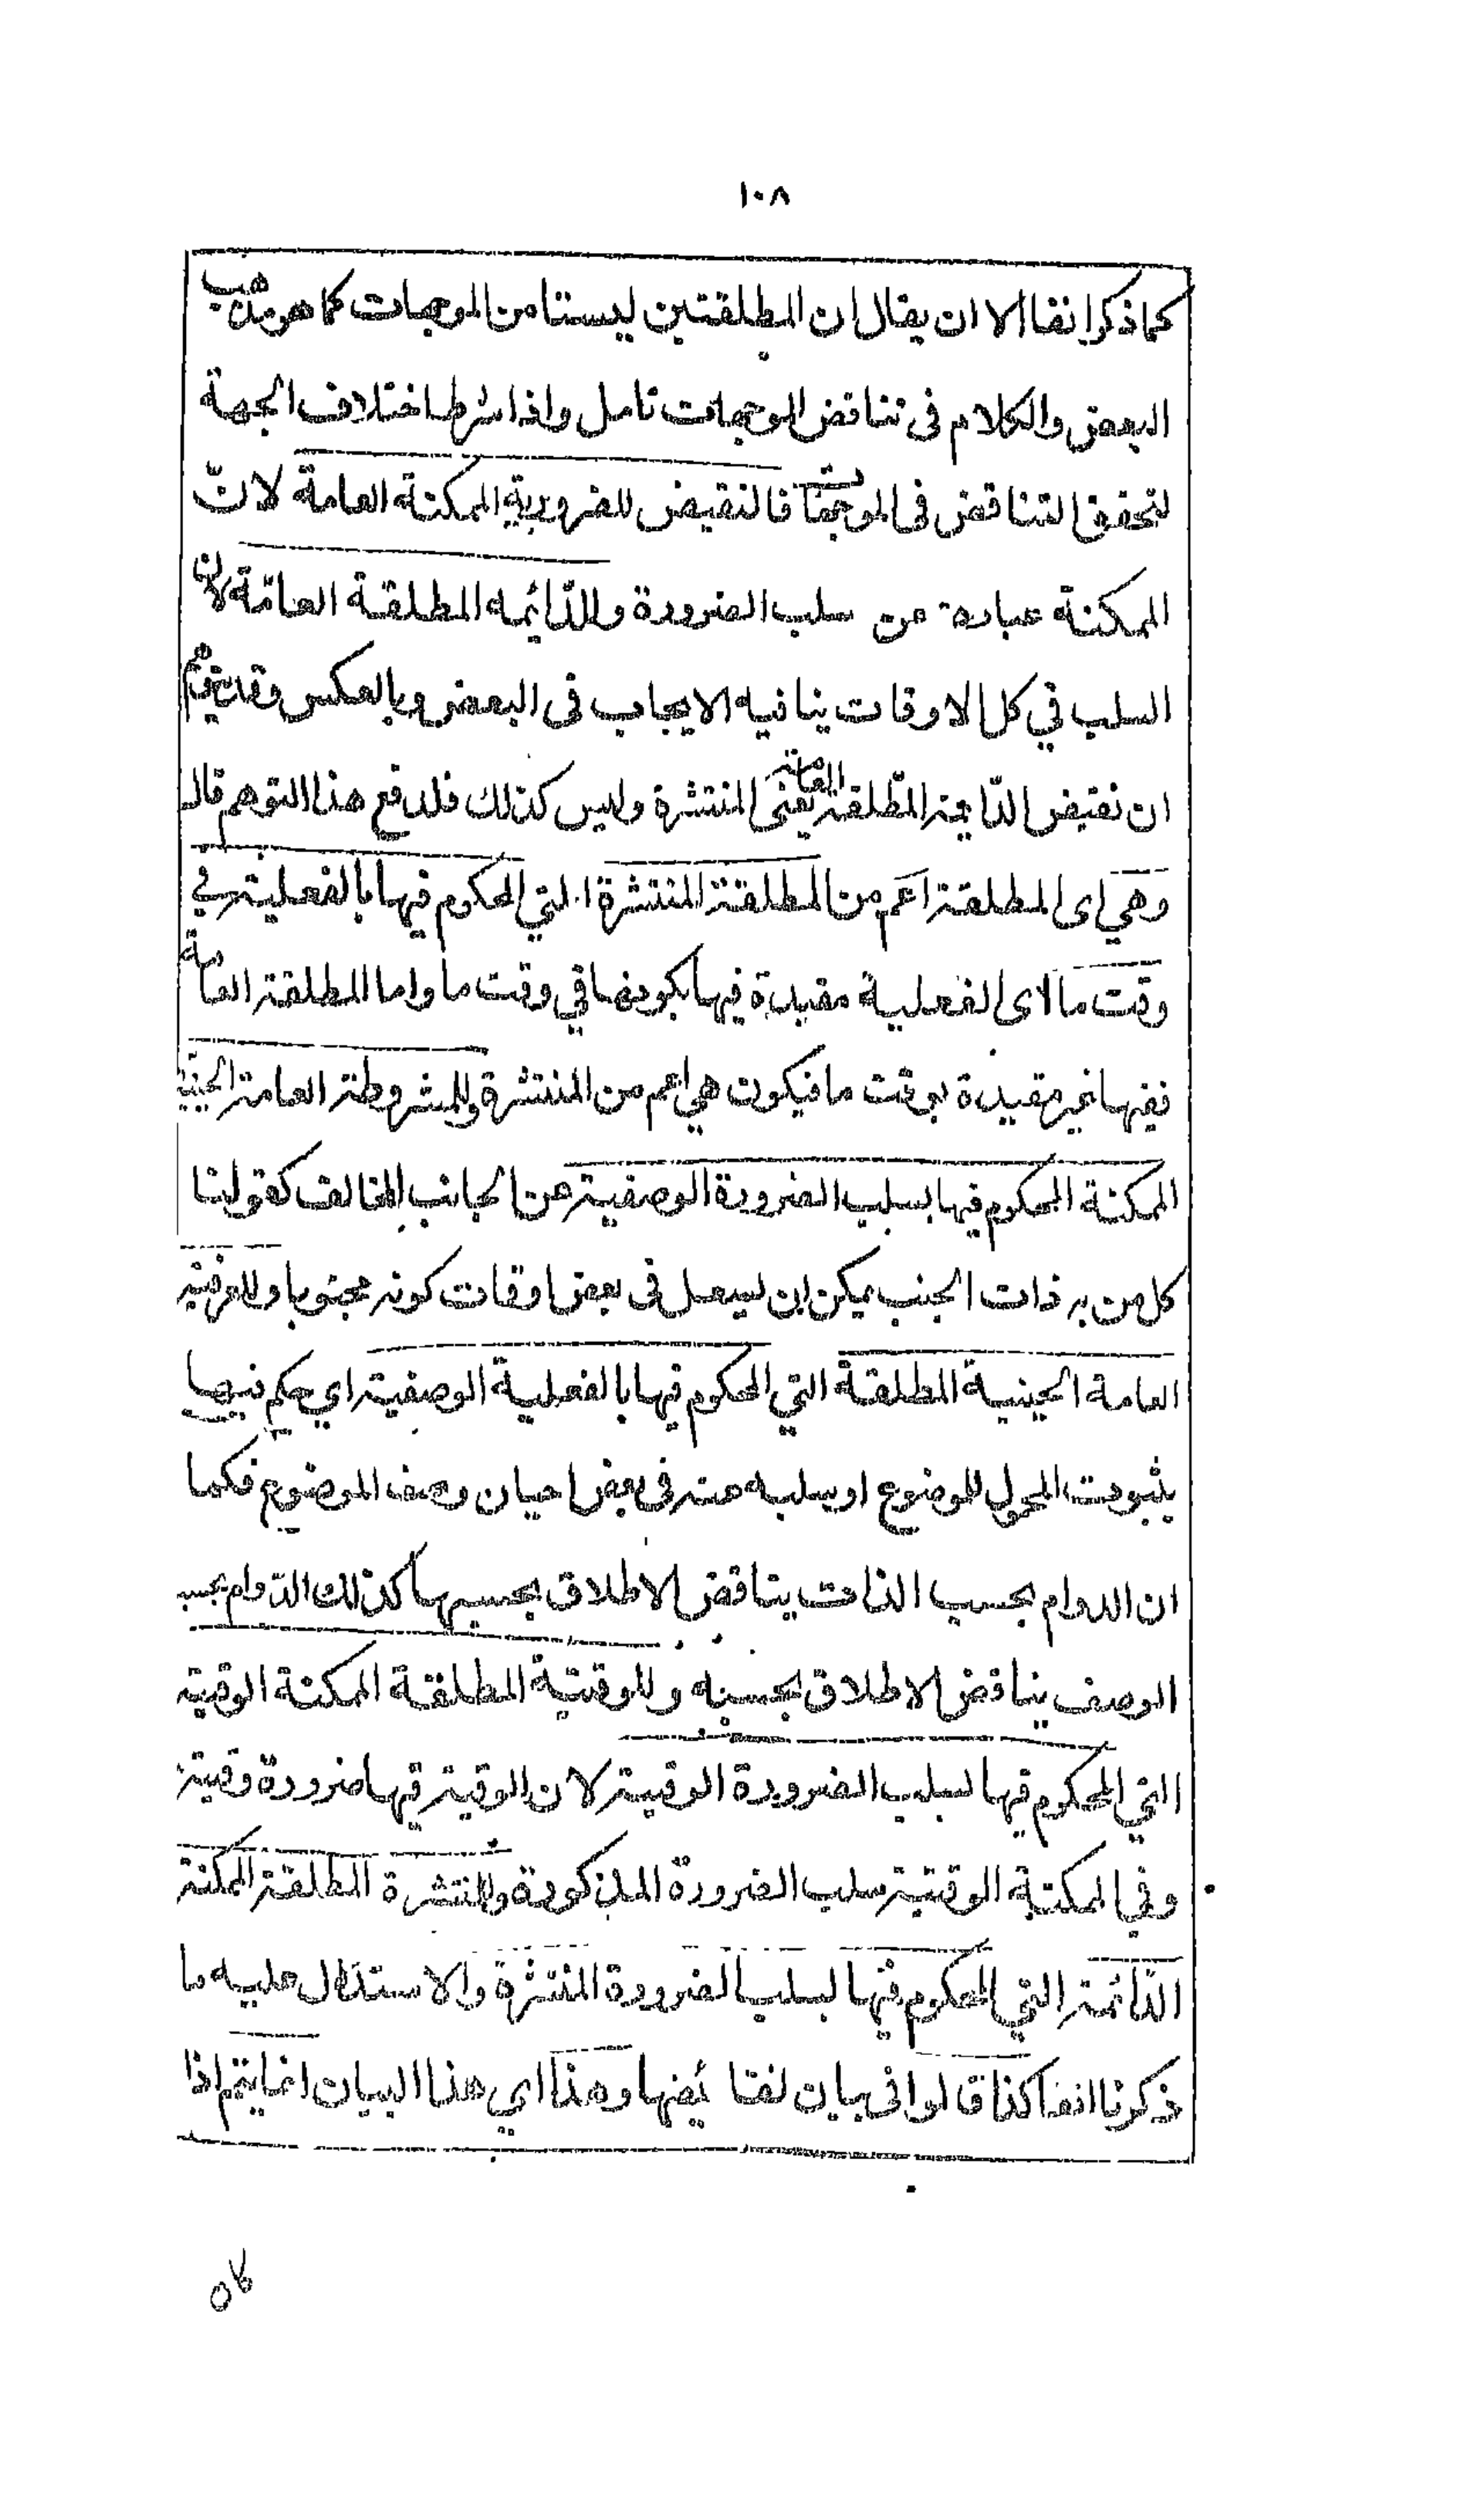 ١٠٨
كما ذكر انفا الا ان يقال ان المطلقتين ليستا من الموجهات كما هو مذهب
البعض والكلام فى تناقض الموجهات تامل واذا شرط اختلاف الجهة
لتحقق التناقض فى الموجهات فالنقيض للضرورية الممكنة العامة لانّ
الممكنة عبارة عن سلب الضرورة وللدّائمه المطلقة العامّة لان
السلب في كل الاوقات ينافيه الايجاب فى البعض وبالعكس وقد يتوهم
ان نقيض الدّايمة المطلقة العامة يعنى المنتشرة وليس كذلك فلدفع هذا التوهم قال
وهي اى المطلقة اعم من المطلقة المنتشرة التي المحكوم فيها بالفعلية في
وقت ما لاى الفعلية مقيدة فيها بكونها في وقت ما واما المطلقة العامة
ففيها غير مقيدة بوقت ما فيكون هي اعم من المنتشرة وللمشروطة العامة الحينية
الممكنة المحكوم فيها بسلب الضرورة الوصفية عن الجانب المخالف كقولنا
كل من به ذات الجنب يمكن ان يسعل فى بعض اوقات كونه مجنوبا وللعرفية
العامة الحينية المطلقة التي المحكوم فيها بالفعلية الوصفية اي حكم فيها
بثبوت المحمول للموضوع او سلبه عنه فى بعض احيان وصف الموضوع فكما
ان الدوام بحسب الذات يناقض الاطلاق بحسبها كذلك الدّوام بحسب
الوصف يناقض الاطلاق بحسبه وللوقتية المطلقة الممكنة الوقتية
التي المحكوم فيها بسلب الضرورة الوقتية لان الوقتية فيها ضرورة وقتية
وفي الممكنة الوقتية سلب الضرورة المذكورة وللمنتشرة المطلقة الممكنة
الدّائمة التي المحكوم فيها بسلب الضرورة المنتشرة والاستدلال عليه ما
ذكرنا انفا كذا قالوا فى بيان نقائضها وهذا اي هذا البيان انما يتم اذا
كان